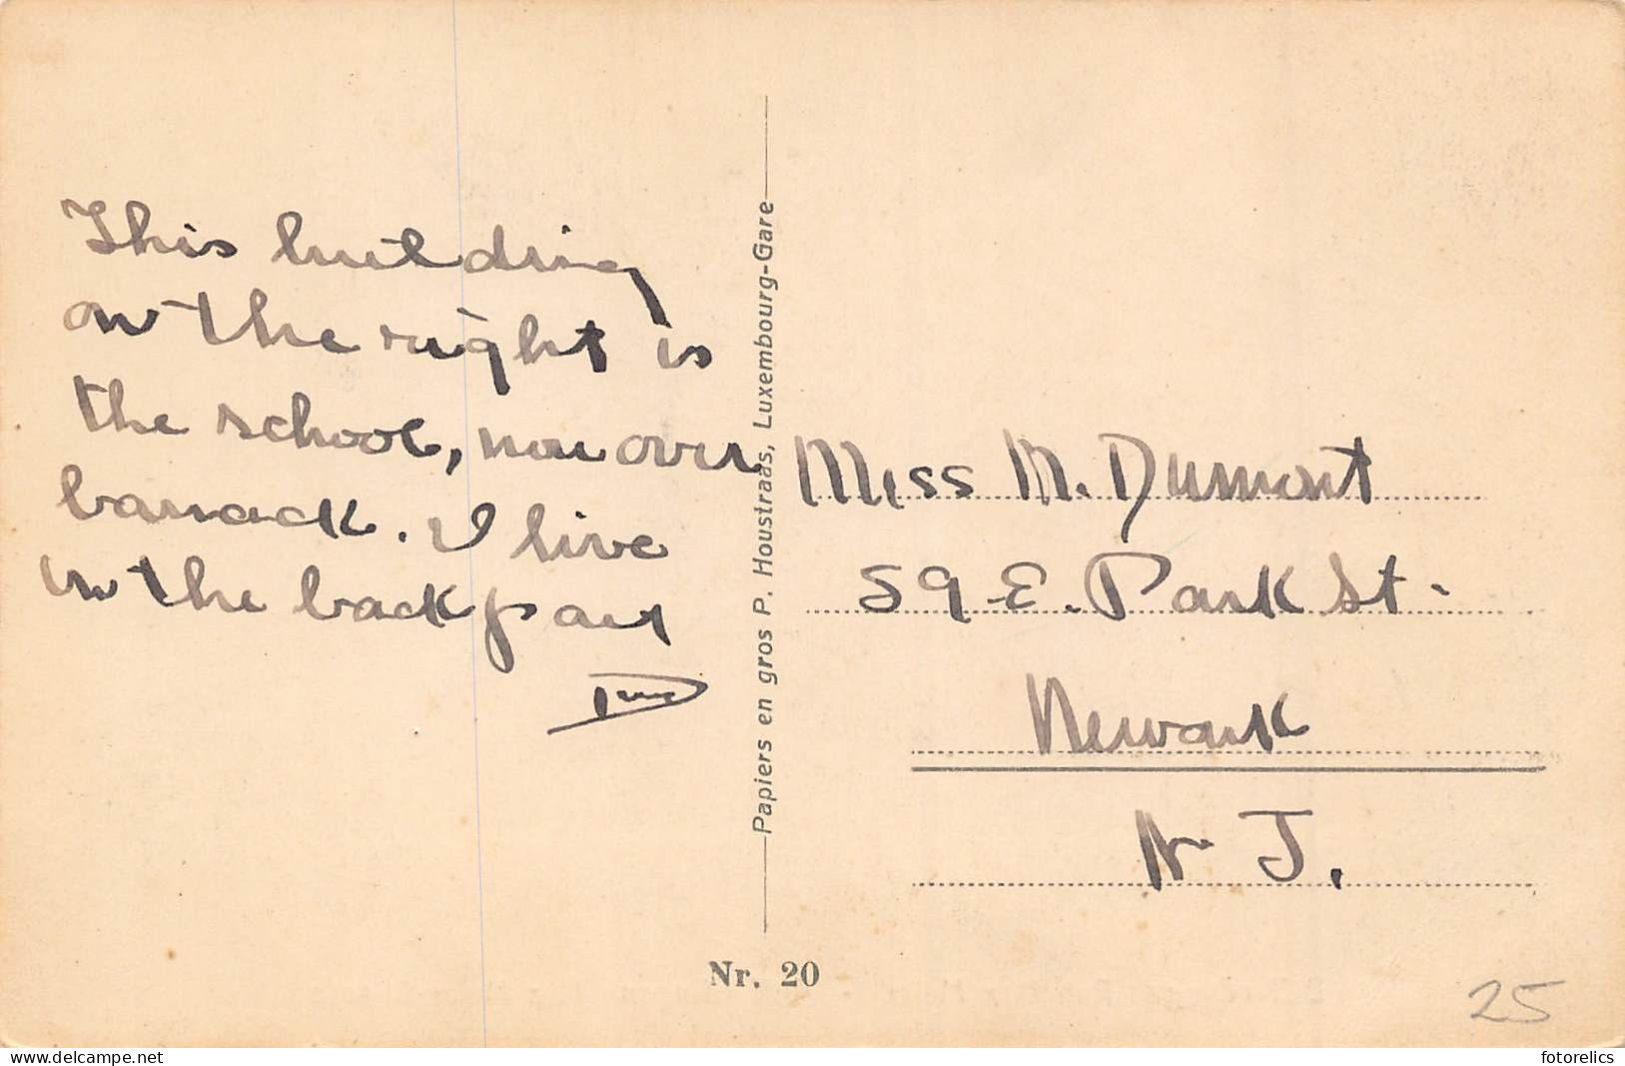 This building
on the right is
the school, now our
barrack. I live
in the back part
Papiers en gros P. Houstraas, Luxembourg-Gare
Miss M. Dumont
59 E. Park St.
Newark
N. J.
Nr. 20
25
delcampe.net
fotorelics